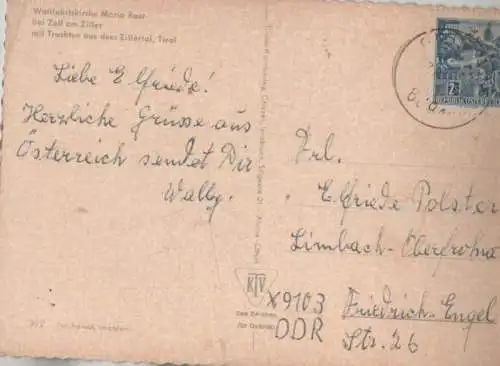 Wallfahrtskirche Maria Rast
bei Zell am Ziller
mit Trachten aus dem Zillertal, Tirol
Liebe Elfriede!
Herzliche Grüsse aus
Österreich sendet Dir
Wally.
2
REPUBLIK ÖSTERREICH
Frl.
Elfriede Polster
Limbach-Oberfrohna
Friedrich-Engel
Str. 26
X9103
DDR
RTV
Das Zeichen
für Qualität